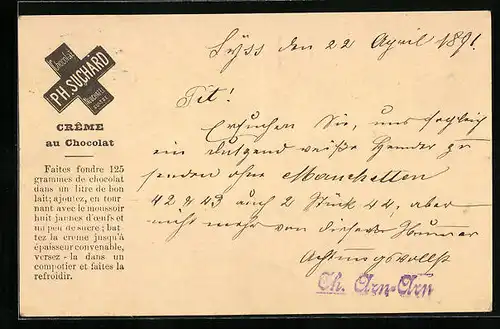 Chocolat
PH. SUCHARD
NEUCHATEL
SUISSE
CRÊME
au Chocolat
Faites fondre 125
grammes de chocolat
dans un litre de bon
lait; ajoutez, en tour
nant avec le moussoir
huit jaunes d'œufs et
un peu de sucre; bat
tez la creme jusqu'à
épaisseur convenable,
versez - la dans un
compotier et faites la
refroidir.
Lyss den 22 April 1891.
Tit!
Ersuchen Sie, uns sogleich
ein Dutzend weiße Hemder zu
senden ohne Manchetten
42 & 43 auch 2 Stück 44, aber
nicht mehr von dieser Nummer
Achtungsvollst
Th. Arn-Arn